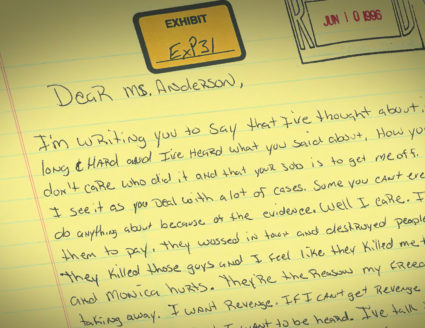 EXHIBIT
EXP31
JUN 10 1996
Dear Ms. Anderson,
I'm writing you to say that I've thought about,
long & HARD and I've Heard what you said about. How you
don't care who did it and that your Job is to get me off.
I see it as you Deal with a lot of cases. Some you can't
do anything about because of the evidence. Well I care. I
them to pay. they wossed in town and destroyed people
They killed those guys and I feel like they killed me
and Monica hurts. They're the Reason my
taking away. I want Revenge. If I can't get Revenge
want to be heard. I've